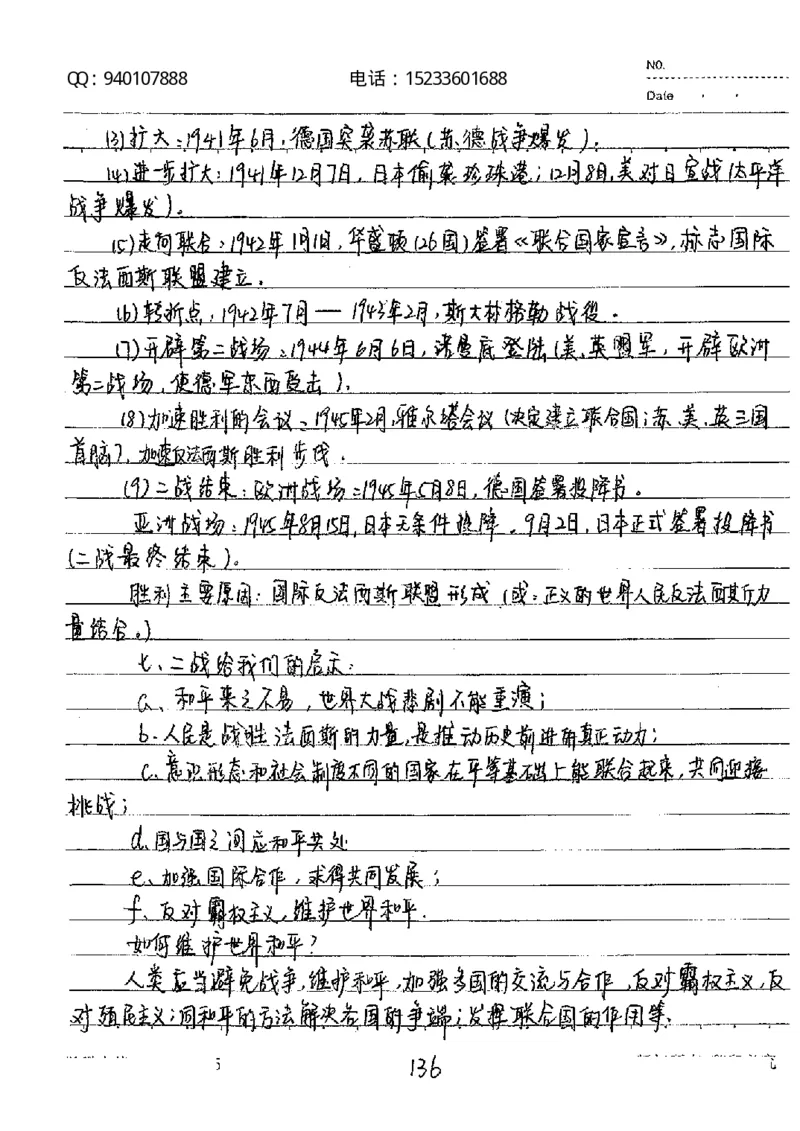 QQ：940107888 电话：15233601688 NO.
Date
(3)扩大：1941年6月，德国突袭苏联(苏、德战争爆发)。
(4)进一步扩大：1941年12月7日，日本偷袭珍珠港；12月8日，美对日宣战(太平洋
战争爆发)。
(5)走向联合：1942年1月1日，华盛顿(26国)签署《联合国家宣言》，标志国际
反法西斯联盟建立。
(6)转折点：1942年7月—1943年2月，斯大林格勒战役。
(7)开辟第二战场：1944年6月6日，诺曼底登陆(美、英盟军，开辟欧洲
第二战场，使德军东西受击)。
(8)加速胜利的会议：1945年2月，雅尔塔会议(决定建立联合国；苏、美、英三国
首脑)，加速反法西斯胜利步伐.
(9)二战结束：欧洲战场：1945年5月8日，德国签署投降书。
亚洲战场：1945年8月15日，日本无条件投降。9月2日，日本正式签署投降书
(二战最终结束)。
胜利主要原因：国际反法西斯联盟形成(或：正义的世界人民反法西斯力
量结合。)
七、二战给我们的启示：
a、和平来之不易，世界大战悲剧不能重演；
b.人民是战胜法西斯的力量，是推动历史前进的真正动力；
c.意识形态和社会制度不同的国家在平等基础上能联合起来，共同迎接
挑战；
d、国与国之间应和平共处
e、加强国际合作，求得共同发展；
f、反对霸权主义，维护世界和平.
如何维护世界和平？
人类应当避免战争，维护和平，加强各国的交流与合作，反对霸权主义，反
对殖民主义；用和平的方法解决各国的争端；发挥联合国的作用等.
136